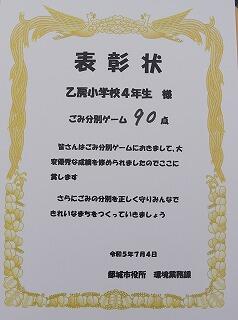 表彰状
乙房小学校4年生 様
ごみ分別ゲーム 90 点
皆さんはごみ分別ゲームにおきまして、大
変優秀な成績を修められましたのでここに
賞します
さらにごみの分別を正しく守りみんなで
きれいなまちをつくっていきましょう
令和5年7月4日
都城市役所 環境業務課